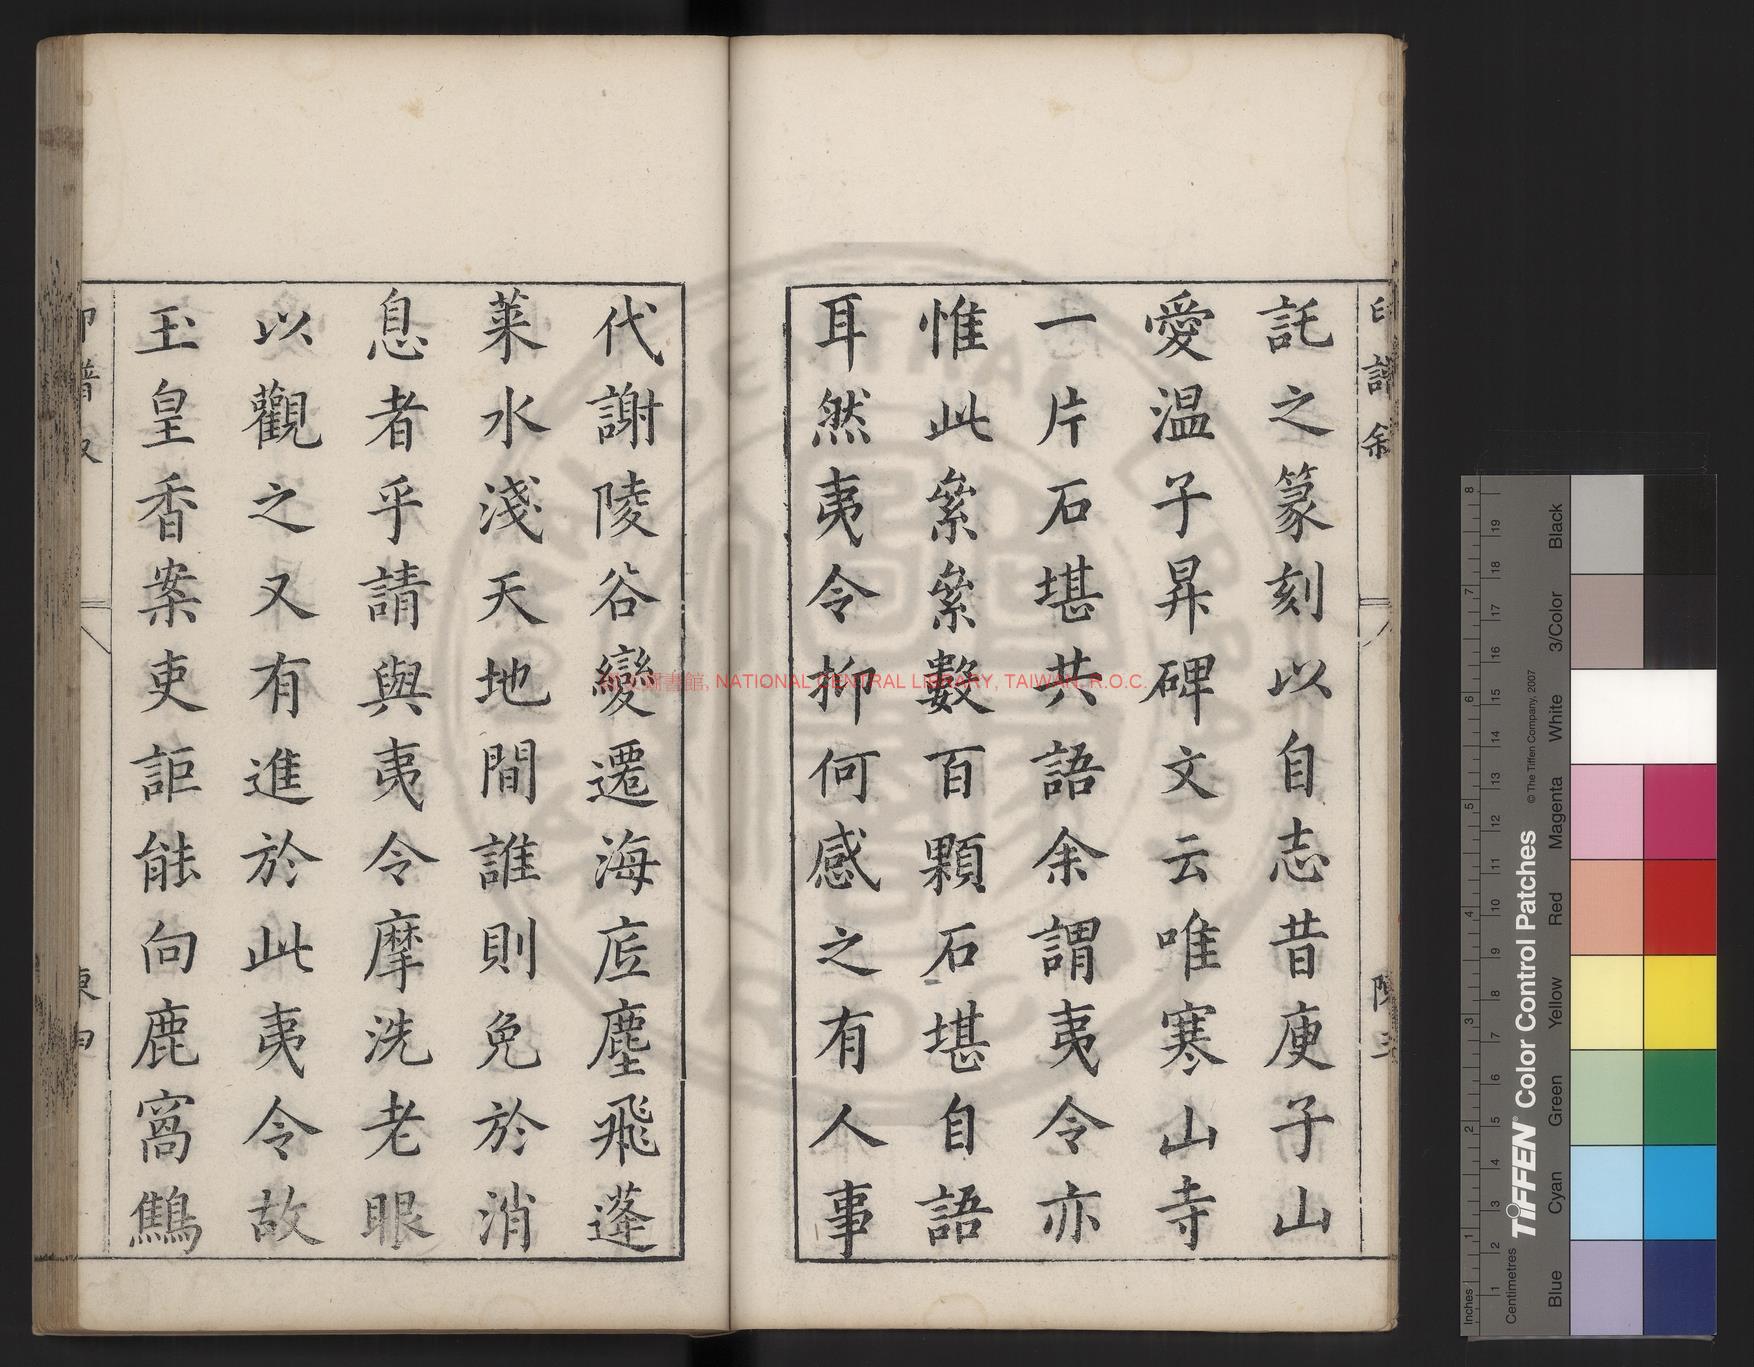 託之篆刻以自志昔庾子山
愛温子昇碑文云唯寒山寺
一片石堪共語余謂夷令亦
惟此絫絫數百顆石堪自語
耳然夷令抑何感之有人事
代謝陵谷變遷海底塵飛蓬
萊水淺天地間誰則免於消
息者乎請與夷令摩洗老眼
以觀之又有進於此夷令故
玉皇香案吏詎能向鹿窩鷦
NATIONAL CENTRAL LIBRARY, TAIWAN, R.O.C.
TIFFEN Color Control Patches
© The Tiffen Company, 2007
Inches
Centimetres
Blue
Cyan
Green
Yellow
Red
Magenta
White
3/Color
Black